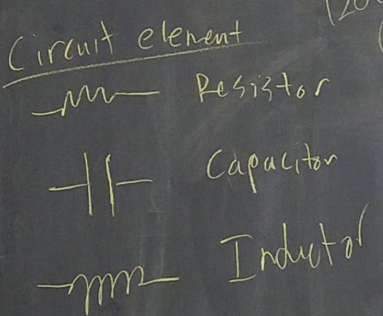 Circuit element
Resistor
Capacitor
Inductor